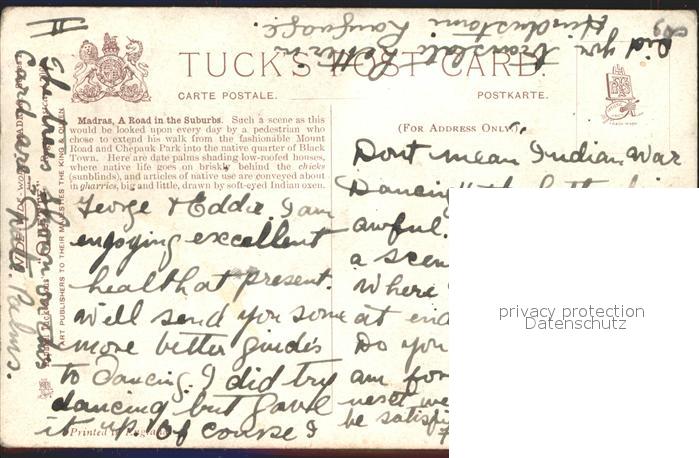 TUCK'S POST CARD
CARTE POSTALE.
POSTKARTE.
Madras, A Road in the Suburbs. Such a scene as this
would be looked upon every day by a pedestrian who
chose to extend his walk from the fashionable Mount
Road and Chepauk Park into the native quarter of Black
Town. Here are date palms shading low-roofed houses,
where native life goes on briskly behind the chicks
(sunblinds), and articles of native use are conveyed about
in gharries, big and little, drawn by soft-eyed Indian oxen.
George & Eddie. I am
enjoying excellent
health at present.
will send you some
more better
to Dancing. I did try
dancing but gave
it up. Of course I
Printed in England
(FOR ADDRESS ONLY.)
Dont mean Indian War
Dancing
awful.
a scen
Where
at end
Do you
am for
next we
be satisfi
Did you
translate letter in
Hindustani Language.
The trees shown on this
Card are Date Palms.
ART PUBLISHERS TO THEIR MAJESTIES THE KING & QUEEN
privacy protection
Datenschutz